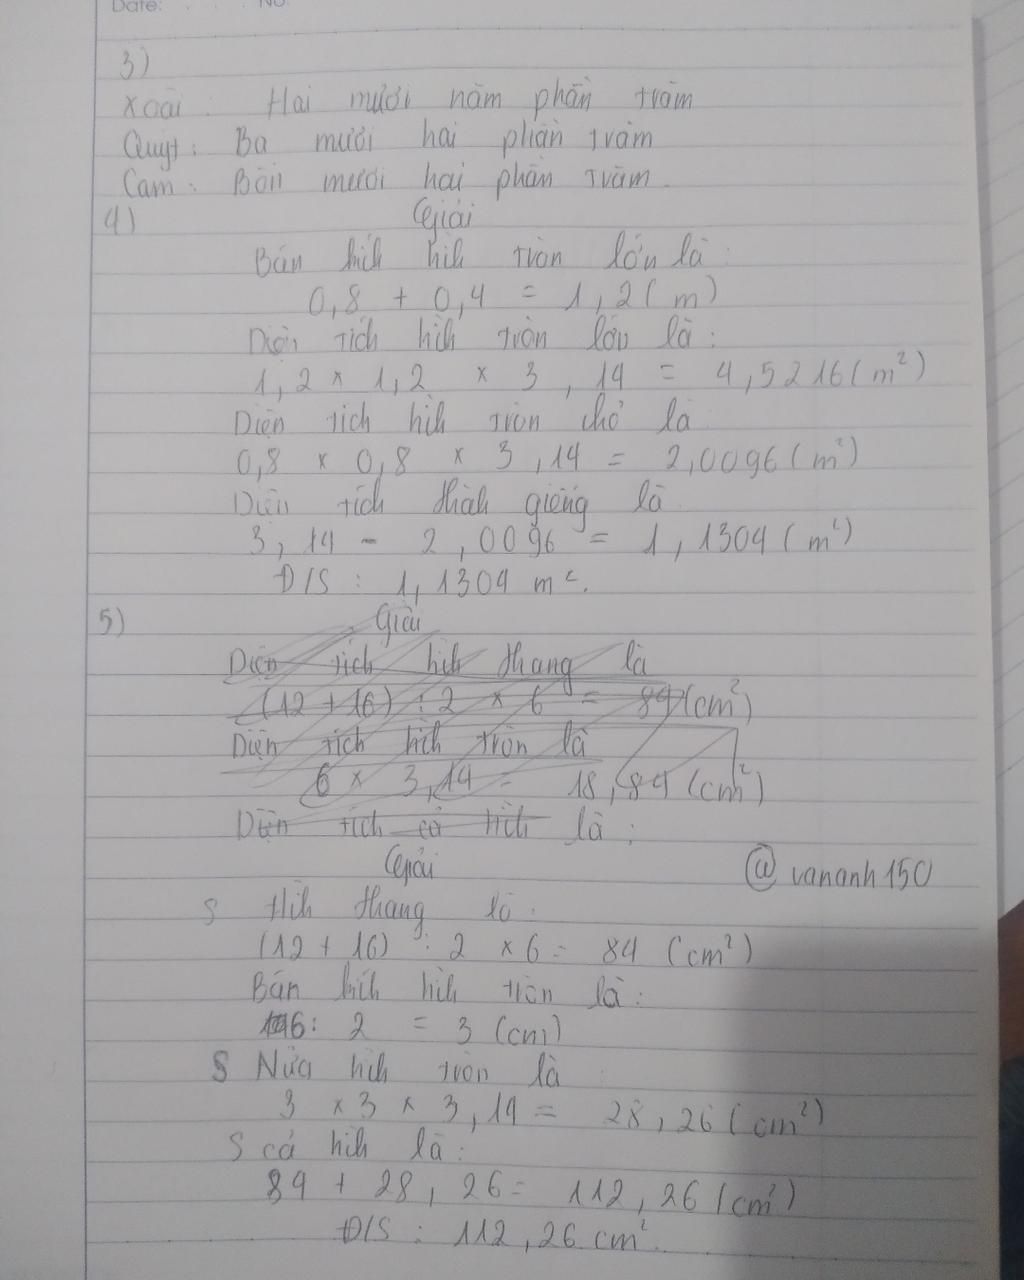 Date: No:
3)
Xoài : Hai mươi năm phần trăm
Quýt : Ba mươi hai phần trăm
Cam : Bốn mươi hai phần trăm
4) Giải
Bán kíh hìh tròn lớn là :
0,8 + 0,4 = 1,2 ( m )
Diện tích hìh tròn lớn là :
1,2 x 1,2 x 3,14 = 4,5216 ( m² )
Diện tích hìh tròn nhỏ là
0,8 x 0,8 x 3,14 = 2,0096 ( m² )
Diện tích thàh giếng là
3,14 - 2,0096 = 1,1304 ( m² )
Đ/S : 1,1304 m².
5) Giải
Diện tích hìh thang là
(12 + 16) : 2 x 6 = 84 (cm²)
Diện tích hìh tròn là
6 x 3,14 = 18,84 (cm²)
Diện tích cả hìh là :
Giải
@vananh150
S Hìh thang là :
(12 + 16) : 2 x 6 = 84 (cm²)
Bán kíh hìh tròn là :
6 : 2 = 3 (cm)
S Nửa hìh tròn là :
3 x 3 x 3,14 = 28,26 (cm²)
S cả hìh là :
84 + 28,26 = 112,26 (cm²)
Đ/S : 112,26 cm².